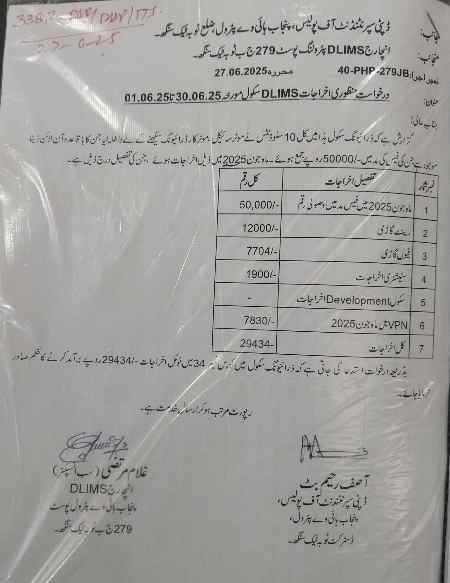 3382-DSP/DHP/TTS.
27-6-25
بجانب: ڈپٹی سپرنٹنڈنٹ آف پولیس، پنجاب ہائی وے پٹرول، ضلع ٹوبہ ٹیک سنگھ۔
منجانب: انچارج DLIMS پٹرولنگ پوسٹ 279 ج ب ٹوبہ ٹیک سنگھ۔
نمبر اجرا: 40-PHP-279JB محررہ 27.06.2025
عنوان: درخواست منظوری اخراجات DLIMS سکول مورخہ 01.06.25 تا 30.06.25
جناب عالی!
گزارش ہے کہ ڈرائیونگ سکول ہذا میں کل 10 سٹوڈنٹس نے موٹر سائیکل، موٹر کار ڈرائیونگ سیکھنے کے لے داخلہ لیا جن کا باقاعدہ آن لائن ڈیٹا
موجود ہے جن کی فیس کی مد میں -/50000 روپے جمع ہوئے ۔ ماہ جون 2025 میں ذیل اخراجات ہوئے ، جن کی تفصیل درج ذیل ہے۔
نمبر شمار تفصیل اخراجات کل رقم
1 ماہ جون 2025 میں فیس مد میں وصولی رقم 50,000/-
2 رینٹ گاڑی 12000/-
3 فیول گاڑی 7704/-
4 سٹیشنری اخراجات 1900/-
5 سکول Development اخراجات -
6 VPN بل ماہ جون 2025 7830/-
7 کل اخراجات 29434/-
بذریعہ درخواست استدعا کی جاتی ہے کہ ڈرائیونگ سکول میں 34 میں ٹوٹل اخراجات -/29434 روپے برآمد کرنے کا حکم صادر
فرمایا جائے۔
رپورٹ مرتب ہو کر ارسال خدمت ہے۔
غلام مرتضیٰ (سب انسپکٹر)
انچارج DLIMS
پنجاب ہائی وے پٹرول پوسٹ
279 ج ب ٹوبہ ٹیک سنگھ۔
آصف رحیم بٹ
ڈپٹی سپرنٹنڈنٹ آف پولیس،
پنجاب ہائی وے پٹرول،
ڈسٹرکٹ ٹوبہ ٹیک سنگھ۔